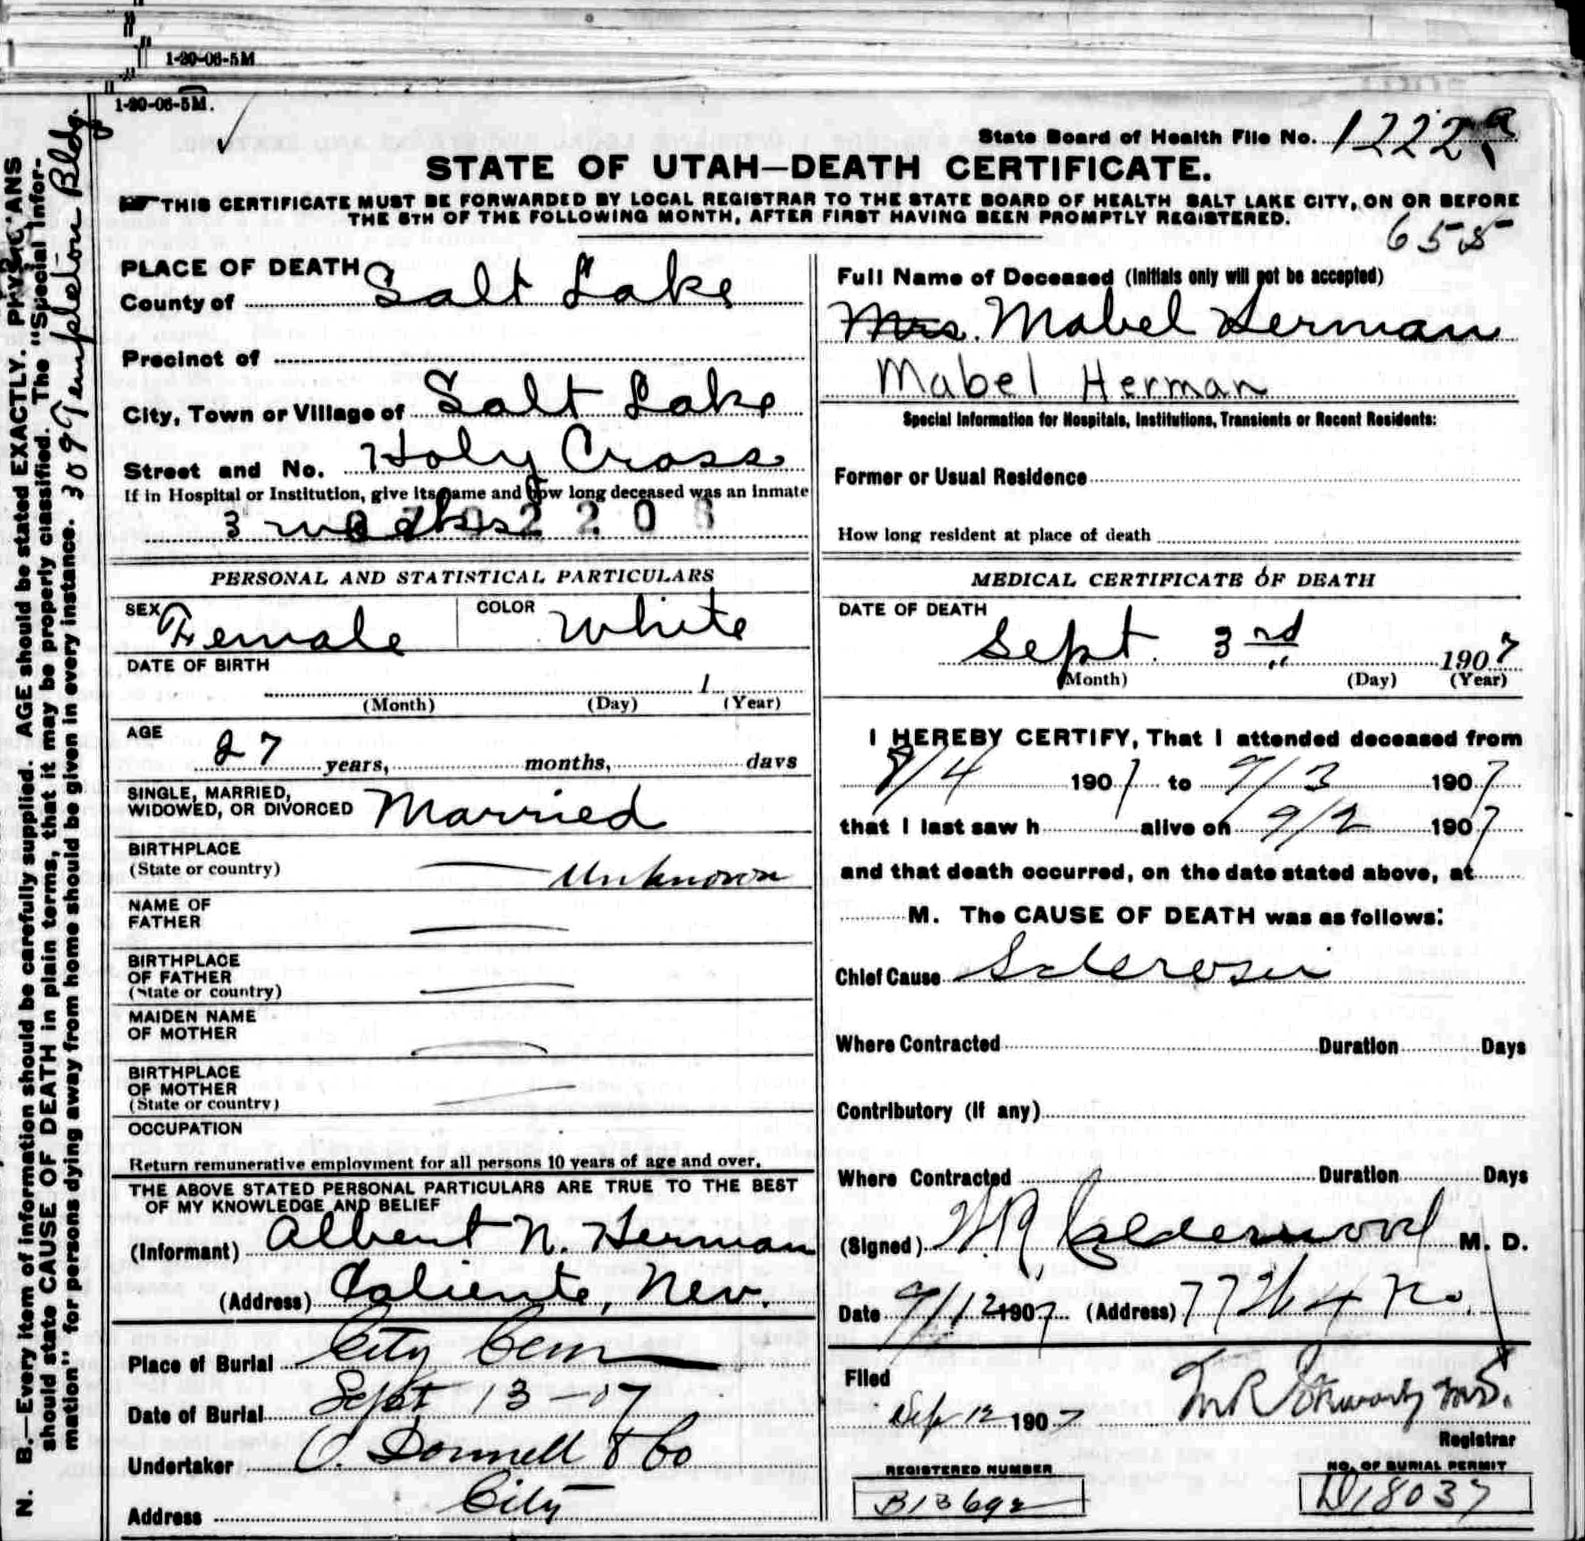 1-20-06-5M
1-20-06-5M.
State Board of Health File No. 1222
STATE OF UTAH—DEATH CERTIFICATE.
THIS CERTIFICATE MUST BE FORWARDED BY LOCAL REGISTRAR TO THE STATE BOARD OF HEALTH SALT LAKE CITY, ON OR BEFORE
THE 5TH OF THE FOLLOWING MONTH, AFTER FIRST HAVING BEEN PROMPTLY REGISTERED.
655
N. B.—Every item of information should be carefully supplied. AGE should be stated EXACTLY. PHYSICIANS
should state CAUSE OF DEATH in plain terms, that it may be properly classified. The "Special Infor-
mation" for persons dying away from home should be given in every instance. 309 Templeton Bldg.
PLACE OF DEATH
County of Salt Lake
Precinct of
City, Town or Village of Salt Lake
Street and No. Holy Cross
If in Hospital or Institution, give its name and how long deceased was an inmate
3 weeks
PERSONAL AND STATISTICAL PARTICULARS
SEX Female COLOR White
DATE OF BIRTH
1
(Month) (Day) (Year)
AGE
27 years, months, days
SINGLE, MARRIED,
WIDOWED, OR DIVORCED Married
BIRTHPLACE
(State or country) — Unknown
NAME OF
FATHER —
BIRTHPLACE
OF FATHER
(State or country) —
MAIDEN NAME
OF MOTHER —
BIRTHPLACE
OF MOTHER
(State or country) —
OCCUPATION
Return remunerative employment for all persons 10 years of age and over.
THE ABOVE STATED PERSONAL PARTICULARS ARE TRUE TO THE BEST
OF MY KNOWLEDGE AND BELIEF
(Informant) Albert N. Herman
(Address) Caliente, Nev.
Place of Burial City Cem
Date of Burial Sept 13 - 07
Undertaker O. Donnell & Co
Address City
Full Name of Deceased (Initials only will not be accepted)
Mrs. Mabel Herman
Mabel Herman
Special Information for Hospitals, Institutions, Transients or Recent Residents:
Former or Usual Residence
How long resident at place of death
MEDICAL CERTIFICATE OF DEATH
DATE OF DEATH
Sept. 3rd 1907
(Month) (Day) (Year)
I HEREBY CERTIFY, That I attended deceased from
8/4 1907 to 9/3 1907
that I last saw h alive on 9/2 1907
and that death occurred, on the date stated above, at
M. The CAUSE OF DEATH was as follows:
Chief Cause Sclerosis
Where Contracted Duration Days
Contributory (if any)
Where Contracted Duration Days
(Signed) W.R. Calderwood M. D.
Date 9/12 1907 (Address) 77
Filed
Sep 12 1907
Registrar
REGISTERED NUMBER
B13692
NO. OF BURIAL PERMIT
D18037